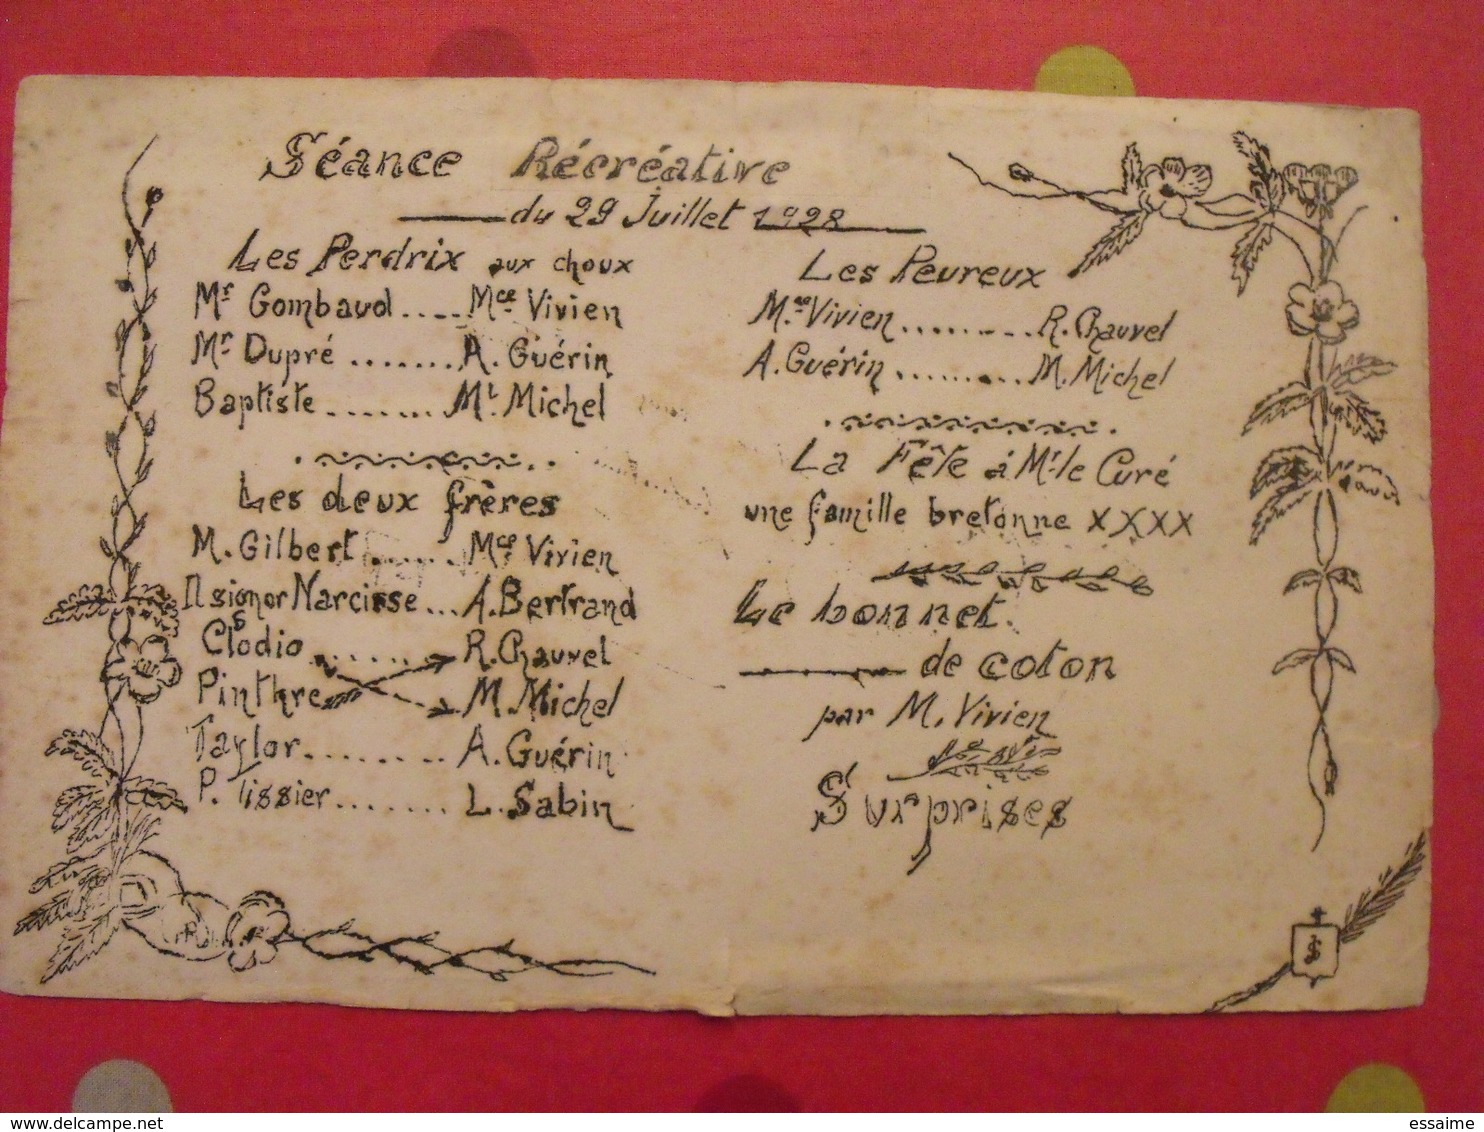 Séance Récréative
du 29 Juillet 1928
Les Perdrix aux choux
Mr Gombaud ..... Mce Vivien
Mr Dupré ....... A. Guérin
Baptiste ....... Ml Michel
Les deux frères
M. Gilbert ...... Mce Vivien
Il signor Narcisse ... A. Bertrand
Clodio ...... R. Chauvel
Pinthre M. Michel
Taylor ........ A. Guérin
P. Tissier ....... L. Sabin
Les Peureux
Mce Vivien ........ R. Chauvel
A. Guérin ......... M. Michel
La Fête à Mr le Curé
une famille bretonne XXXX
Le bonnet
de coton
par M. Vivien
Surprises
www.delcampe.net
essaime